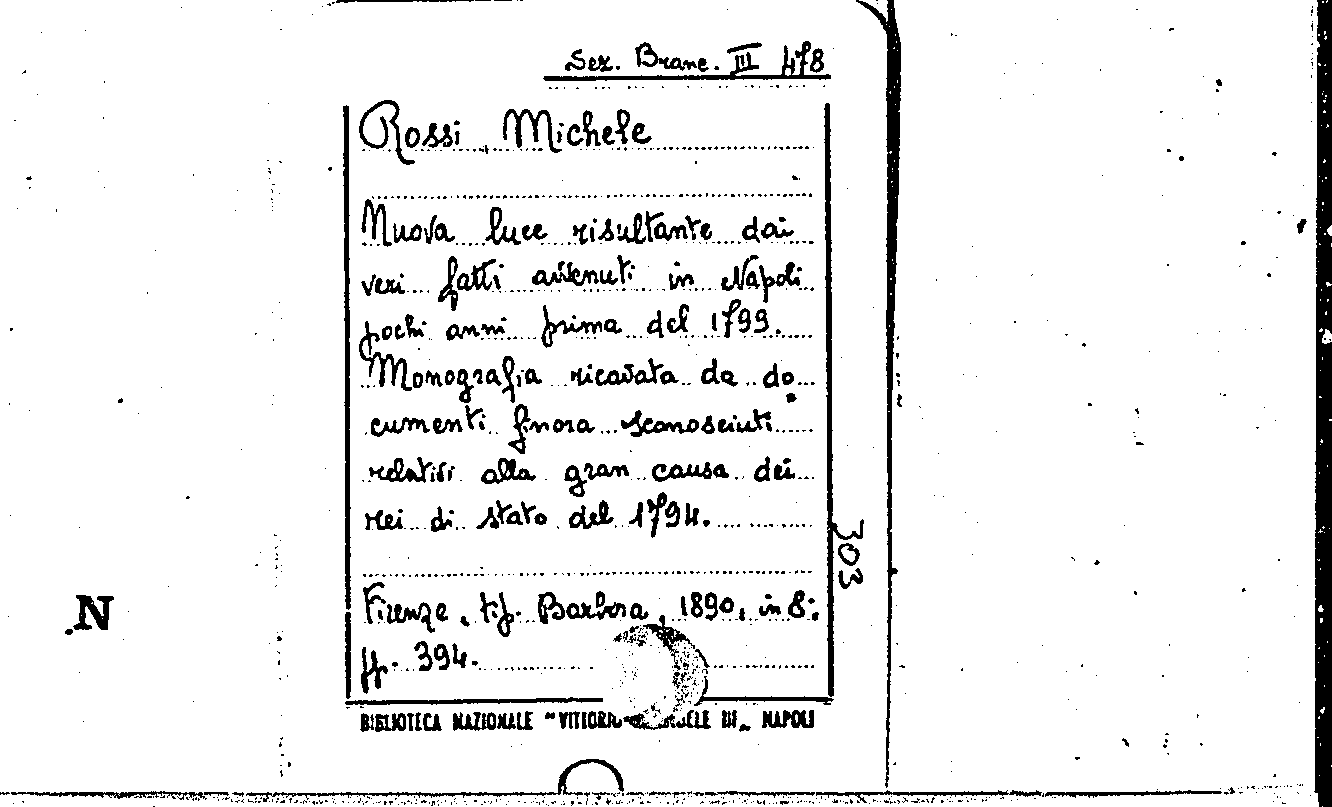 Sez. Branc. III 478
Rossi, Michele
Nuova luce risultante dai
veri fatti avvenuti in Napoli
pochi anni prima del 1799.
Monografia ricavata da do-
cumenti finora sconosciuti
relativi alla gran causa dei
rei di stato del 1794.
303
Firenze, tip. Barbera, 1890, in 8°.
pp. 394.
BIBLIOTECA NAZIONALE "VITTORIO ELE III" NAPOLI
N